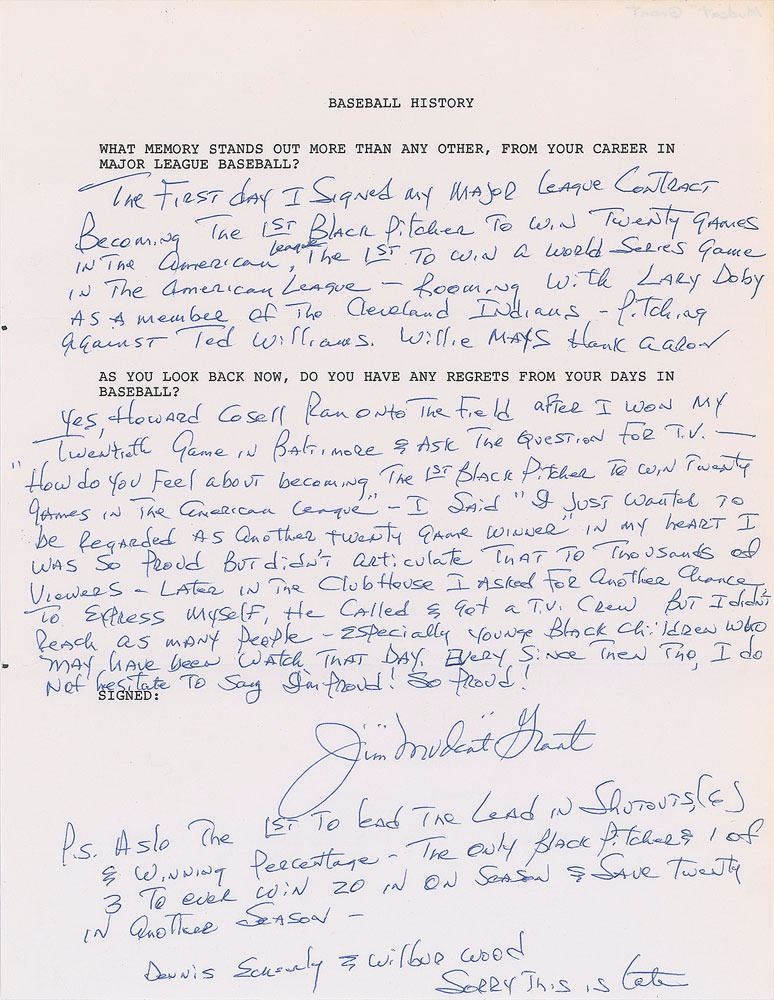 Mudcat Grant
BASEBALL HISTORY
WHAT MEMORY STANDS OUT MORE THAN ANY OTHER, FROM YOUR CAREER IN
MAJOR LEAGUE BASEBALL?
The First day I Signed my Major League Contract
Becoming The 1ST Black Pitcher To win Twenty Games
league
IN The American, The 1ST To win a world Series Game
IN The American League - Rooming With Lary Doby
AS A member of The Cleveland Indians - Pitching
against Ted Williams. Willie Mays Hank Aaron
AS YOU LOOK BACK NOW, DO YOU HAVE ANY REGRETS FROM YOUR DAYS IN
BASEBALL?
Yes, Howard Cosell Ran onto The Field after I won my
Twentieth Game in Baltimore & Ask The Question For T.V. —
"How do you Feel about becoming The 1ST Black Pitcher To win Twenty
games in The American League" - I Said "I Just wanted to
be Regarded as another twenty Game winner" in my heart I
was so proud But didn't articulate That To Thousands of
Viewers - Later in The Club House I asked For another Chance
To Express myself, He Called & got a T.V. Crew But I didn't
Reach as many People - Especially younge Black Children who
may have been Watch That Day. Every Since Then Tho, I do
Not hesitate To say I'm Proud! So Proud!
SIGNED:
Jim "Mudcat" Grant
P.s. Aslo The 1ST To lead The Lead in Shutouts (6)
& Winning Percentage - The only Black Pitcher & 1 of
3 To ever win 20 in on Season & Save Twenty
in another Season -
Dennis & Wilbur Wood
Sorry This is late